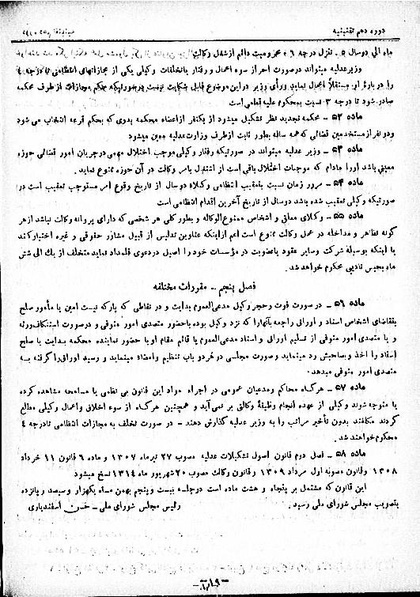 دوره دهم تقنینیه
ماه الی دو سال ۵ـ تنزل درجه ۶ـ محرومیت دائم از شغل وکالت
وزیر عدلیه میتواند در صورت احراز سوء اعمال و رفتار یا تخلفات وکیلی یکی از مجازاتهای انتظامی تا درجه ۴
را درباره او مستقلاً اعمال نماید و رأی وزیر در این موضوع قابل شکایت نیست در صورتیکه حکم مجازات از طرف محکمه
صادر شود تا درجه ۳ نسبت بمحکوم علیه قطعی است
ماده ۵۲ ـ محکمه تجدید نظر تشکیل میشود از یکنفر از اعضاء محکمه بدوی که بحکم قرعه انتخاب می شود
و دو نفر از مستخدمین قضائی که همه ساله بطور ثابت از طرف وزارت عدلیه معین میشود
ماده ۵۳ ـ وزیر عدلیه میتواند در صورتیکه رفتار وکیلی موجب اختلال مهمی در جریان امور قضائی حوزه
معینی باشد او را مادام که موجبات اختلال باقی است از اشتغال بامر وکالت در آن حوزه ممنوع نماید.
ماده ۵۴ ـ مرور زمان نسبت بتعقیب انتظامی وکلاء دو سال از تاریخ وقوع امر مستوجب تعقیب است در
صورتیکه وکیلی تعقیب شده باشد دو سال از تاریخ آخرین اقدام انتظامی است
ماده ۵۵ ـ وکلای معلق و اشخاص ممنوع الوکاله و بطور کلی هر شخصی که دارای پروانه وکالت نباشد از هر
گونه تظاهر و مداخله در عمل وکالت ممنوع است اعم از اینکه عناوین تدلیسی از قبیل مشاور حقوقی و غیره اختیار کند
یا اینکه بوسیله شرکت و سایر عقود یا عضویت در مؤسسات خود را اصیل در دعوی قلمداد نماید متخلف از یک الی شش
ماه بحبس تادیبی محکوم خواهد شد.
فصل پنجم ـ مقررات مختلفه
ماده ۵۶ ـ در صورت فوت و حجر وکیل مدعی العموم بدایت و در نقاطی که پارکه نیست امین یا مأمور صلح
بتقاضای اشخاص اسناد و اوراق راجعه بآنها را که نزد وکیل بوده با حضور متصدی امور متوفی و در صورت استنکاف ورثه
و یا متصدی امور متوفی از تسلیم اوراق و اسناد مدعی العموم یا قائم مقام او با حضور نماینده محکمه بدایت یا صلح
اسناد را اخذ و بصاحبش رد مینماید و صورت مجلسی در هر دو باب تنظیم و امضاء مینماید و رسید اوراق را گرفته به
متصدی امور متوفی میدهد.
ماده ۵۷ ـ هرگاه محاکم و مدعیان عمومی در اجراء مواد این قانون بی نظمی یا مسامحه مشاهده کرده
یا متوجه شوند وکیلی از عهده انجام وظیفهٔ وکالتی بر نمی آید و همچنین هرگاه از سوء اخلاق و اعمال وکیلی مطلع
گردند مکلفند بدون تأخیر مراتب را به وزیر عدلیه گذارش دهند ـ در صورت تخلف به مجازات انتظامی تا درجه ۴
محکوم خواهند شد.
ماده ۵۸ ـ فصل دوم قانون اصول تشکیلات عدلیه مصوب ۲۷ تیرماه ۱۳۰۷ و ماده ۶ قانون ۱۱ خرداد
۱۳۰۸ و قانون مصوبه اول مرداد ۱۳۰۹ و قانون وکالت مصوب ۲۰ شهریور ماه ۱۳۱۴ نسخ میشود
این قانون که مشتمل بر پنجاه و هشت ماده است در جلسه بیست و پنجم بهمن ماه یکهزار و سیصد و پانزده
بتصویب مجلس شورای ملی رسید. رئیس مجلس شورای ملی ـ حسن اسفندیاری